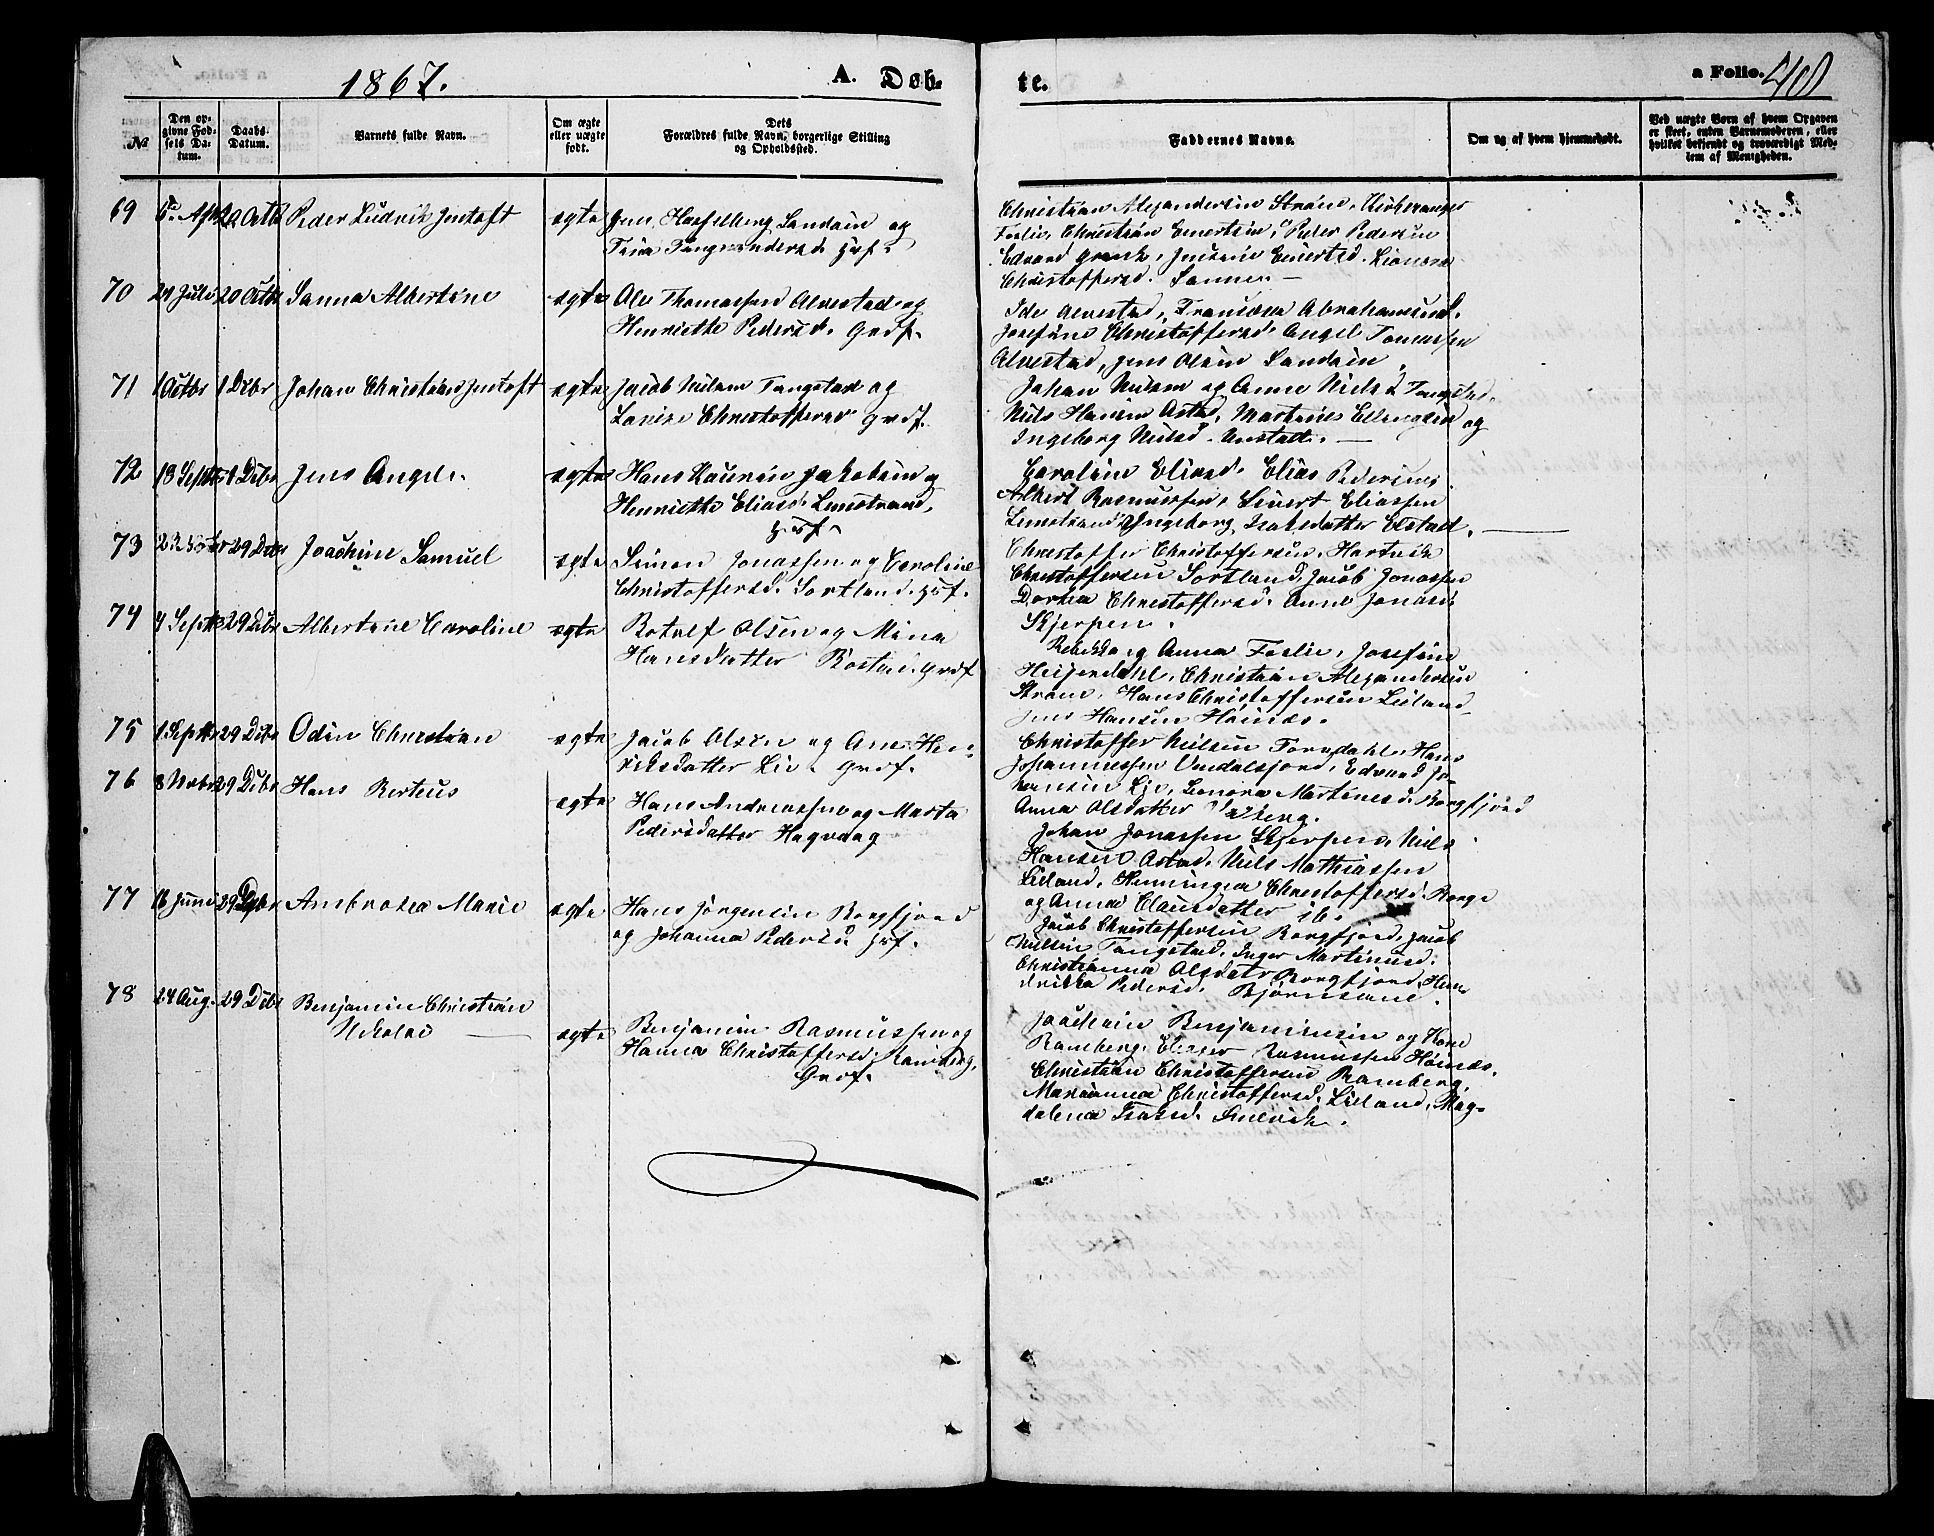 1867.
A. Døb-
te.
a Folio. 40
№
Den op-
givne Fød-
sels Da-
tum.
Daabs-
Datum.
Barnets fulde Navn.
Om ægte
eller uægte
født.
Dets
Forældres fulde Navn, borgerlige Stilling
og Opholdssted.
Faddernes Navne.
Om og af hvem hjemmedøbt.
Ved uægte Børn af hvem Opgaven
er skeet, enten Barnemoderen, eller
hvilket bekjendt og troværdigt Med-
lem af Menigheden.
69 20 Octb Peder Ludvik Justoft ægte Jens Hasselberg Sandøin og
Hsf.
Christian Alexandersen Strøne,
Foslie, Christian Enertsen, Peder Pedersen
Edvard
Christoffersd. Sanne. —
70 24 Juli 20 Octb Sanna Albertine ægte Ole Thomassen Alvestad og
Henriette Pedersd. Grdf.
Ide Alvestad, Fransiska Abrahamsend.
Josefine Christoffersd. Angel Tomassen
Alvestad, Jens Olsen Sandøin
71 1 Octbr 1 Dcbr Johan Christian Justoft ægte Jacob Nilsen Tangstad og
Lovise Christoffersd Grdf.
Johan Nilsen og Anne Nielsd Tangstad,
Nils Hansen Astad, Martines Ellingsen og
Ingeborg Nilsd. Unstad. —
72 13 Septbr 1 Dcbr Jens Angel. ægte Hans Laurin Jakobsen og
Henriette Eliasd. Limstrand,
Hsf.
Caroline Eliasd. Elias Pedersen,
Albert Rasmussen, Sivert Eliassen
Limstrand, Ingeborg Isaksdatter Elstad. —
73 29 Dcbr Joachim Samuel ægte Simon Jonassen og Caroline
Christoffersd. Sortland, Hsf.
Christoffer Christoffersen, Hartvik
Christoffersen Sortland, Jacob Jonassen
Dorthea Christoffersd. Anne Jonasd.
Skjerpen.
74 4 Septbr 29 Dcbr Albertine Caroline ægte Botolf Olsen og Mina
Hansdatter Bostad, Grdf
Rebekka og Anna Foslie, Josefine
Heijerdahl, Christian Alexandersen
Strøne, Hans Christoffersen Lieland
Jens Hansen Høinæs.
75 1 Septbr 29 Dcbr Odin Christian ægte Jacob Olsen og Ane Hen-
riksdatter Lie. Grdf.
Christoffer Nilsen Torvdahl, Hans
Johannessen Vendalsjord, Edvard Jo-
hansen Lie, Leonora Martinesd. Borgfjord
Anna Olsdatter
76 8 Novbr 29 Dcbr Hans Berteus ægte Hans Andreassen og Marta
Pedersdatter Hagvaag
Johan Jonassen Skjerpen, Niels
Hansen Astad, Niels Mathiassen
Lieland, Henningea Christoffersd. Borge
og Anna Clausdatter ib.
77 16 Juni 29 Dcbr Ambrosea Marie ægte Hans Jørgensen Borgfjord
og Johanna Pedersd Hsf.
Jacob Christoffersen Borgfjord, Jacob
Nilsen Tangstad, Inger Martinusd.
Christianna Olsdatr Borgfjord, Hen-
drikka Pedersd. Bjørnsand.
78 24 Aug. 29 Dcbr Benjamin Christian
Nikolai — ægte Benjamin Rasmussen og
Hanna Christoffersd. Ramberg,
Grdf.
Joachim Benjaminsen og Kone
Ramberg, Elieser Rasmussen Høinæs,
Christian Christoffersen Ramberg,
Marianna Christoffersd, Lieland, Mag-
dalena Isaksd. Smervik.